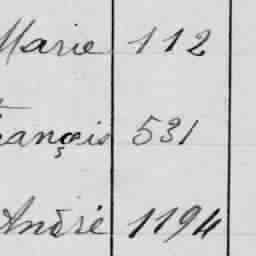 Marie 112
ançois 531
André 1194